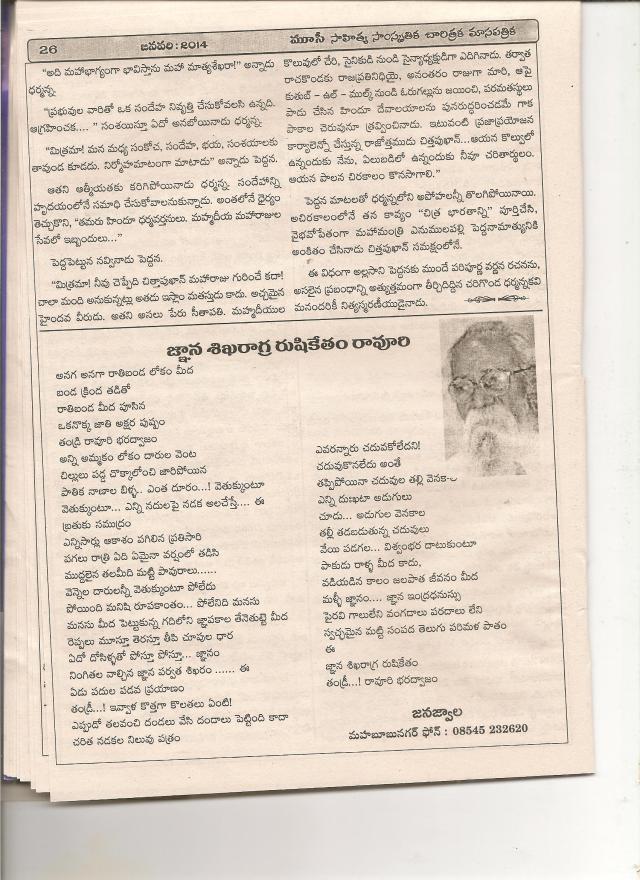 26
జనవరి: 2014
మూసీ సాహిత్య సాంస్కృతిక చారిత్రక మాసపత్రిక
"అది మహాభాగ్యంగా భావిస్తాను మహా మాత్యశేఖరా!" అన్నాడు
ధర్మన్న.
"ప్రభువుల వారితో ఒక సందేహ నివృత్తి చేసుకోవలసి ఉన్నది.
ఆగ్రహించక.... " సంశయిస్తూ ఏదో అనబోయినాడు ధర్మన్న.
"మిత్రమా! మన మధ్య సంకోచ, సందేహ, భయ, సంశయాలకు
తావుండ కూడదు. నిర్మోహమాటంగా మాటాడు" అన్నాడు పెద్దన.
ఆతని ఆత్మీయతకు కరిగిపోయినాడు ధర్మన్న. సందేహాన్ని
హృదయంలోనే సమాధి చేసుకోవాలనుకున్నాడు. అంతలోనే ధైర్యం
తెచ్చుకొని, "తమరు హిందూ ధర్మవర్తనులు. మహ్మదీయ మహారాజుల
సేవలో ఇబ్బందులు..."
పెద్దపెట్టున నవ్వినాడు పెద్దన.
"మిత్రమా! నీవు చెప్పేది చిత్తాపుఖాన్ మహారాజు గురించే కదా!
చాలా మంది అనుకున్నట్లు అతడు ఇస్లాం మతస్తుడు కాదు. అచ్చమైన
హైందవ వీరుడు. అతని అసలు పేరు సీతాపతి. మహ్మదీయుల
కొలువులో చేరి, సైనికుడి నుండి సైన్యాధ్యక్షుడిగా ఎదిగినాడు. తర్వాత
రాచకొండకు రాజప్రతినిధియై, అనంతరం రాజుగా మారి, ఆపై
కుతుబ్ - ఉల్ - ముల్క్ నుండి ఓరుగల్లును జయించి, పరమతస్థులు
పాడు చేసిన హిందూ దేవాలయాలను పునరుద్ధరించడమే గాక
పాకాల చెరువునూ త్రవ్వించినాడు. ఇటువంటి ప్రజాప్రయోజన
కార్యాలెన్నో చేస్తున్న రాజోత్తముడు చిత్తపుఖాన్...ఆయన కొల్వులో
ఉన్నందుకు నేను, ఏలుబడిలో ఉన్నందుకు నీవూ చరితార్థులం.
ఆయన పాలన చిరకాలం కొనసాగాలి."
పెద్దన మాటలతో ధర్మన్నలోని అపోహలన్నీ తొలగిపోయినాయి.
అచిరకాలంలోనే తన కావ్యం "చిత్ర భారతాన్ని" పూర్తిచేసి,
వైభవోపేతంగా మహామంత్రి ఎనుములపల్లి పెద్దనామాత్యునికి
అంకితం చేసినాడు చిత్తపుఖాన్ సమక్షంలోనే.
ఈ విధంగా అల్లసాని పెద్దనకు ముందే పరిపూర్ణ వర్ణన రచనను,
అసలైన ప్రబంధాన్ని అత్యుత్తమంగా తీర్చిదిద్దిన చరిగొండ ధర్మన్నకవి
మనందరికీ నిత్యస్మరణీయుడైనాడు.
జ్ఞాన శిఖరాగ్ర ఋషికేతం రావూరి
అనగ అనగా రాతిబండ లోకం మీద
బండ క్రింద తడితో
రాతిబండ మీద పూసిన
ఒకనొక్క జాతి అక్షర పుష్పం
తండ్రి రావూరి భరద్వాజం
అన్ని అమ్మకం లోకం దారుల వెంట
చిల్లులు పడ్డ చొక్కాలోంచి జారిపోయిన
పాతిక నాణాల బిళ్ళ.. ఎంత దూరం...! వెతుక్కుంటూ
వెతుక్కుంటూ... ఎన్ని నదులపై నడక అలచేస్తే.... ఈ
బ్రతుకు సముద్రం
ఎన్నిసార్లు ఆకాశం పగిలిన ప్రతిసారి
పగలు రాత్రి ఏది ఏమైనా వర్షంలో తడిసి
ముద్దలైన తలమీది మట్టి పావురాలు......
వెన్నెల దారులన్నీ వెతుక్కుంటూ పోలేదు
పోయింది మనిషి రూపకాంతం... పోలేనిది మనసు
మనసు మీద పెట్టుకున్న గదిలోని జ్ఞాపకాల తేనెతుట్టె మీద
రెప్పలు మూస్తూ తెరస్తూ తీపి చూపుల ధార
ఏదో దోసిళ్ళతో పోస్తూ పోస్తూ... జ్ఞానం
నింగితల వాల్చిన జ్ఞాన పర్వత శిఖరం ...... ఈ
ఏడు పదుల పడవ ప్రయాణం
తండ్రీ...! ఇవ్వాళ కొత్తగా కొలతలు ఏంటి!
ఎప్పుడో తలవంచి దండలు వేసి దండాలు పెట్టింది కాదా
చరిత నడకల నిలువు పత్రం
ఎవరన్నారు చదువకోలేదని!
చదువుకొనలేదు అంతే
తప్పిపోయినా చదువుల తల్లి
ఎన్ని దుఃఖటా అడుగులు
చూడు... అడుగుల వెనకాల
తల్లీ తడబడుతున్న చదువులు
వేయి పడగల... విశ్వంభర దాటుకుంటూ
పాకుడు రాళ్ళ మీద కాదు,
వడియడిన కాలం జలపాత జీవనం మీద
మళ్ళీ జ్ఞానం.... జ్ఞాన ఇంద్రధనుస్సు
పైరవి గాలులేని వంగడాలు పరదాలు లేని
స్వచ్ఛమైన మట్టి సంపద తెలుగు పరిమళ పాతం
ఈ
జ్ఞాన శిఖరాగ్ర ఋషికేతం
తండ్రీ...! రావూరి భరద్వాజం
జనజ్వాల
మహబూబునగర్ ఫోన్ : 08545 232620